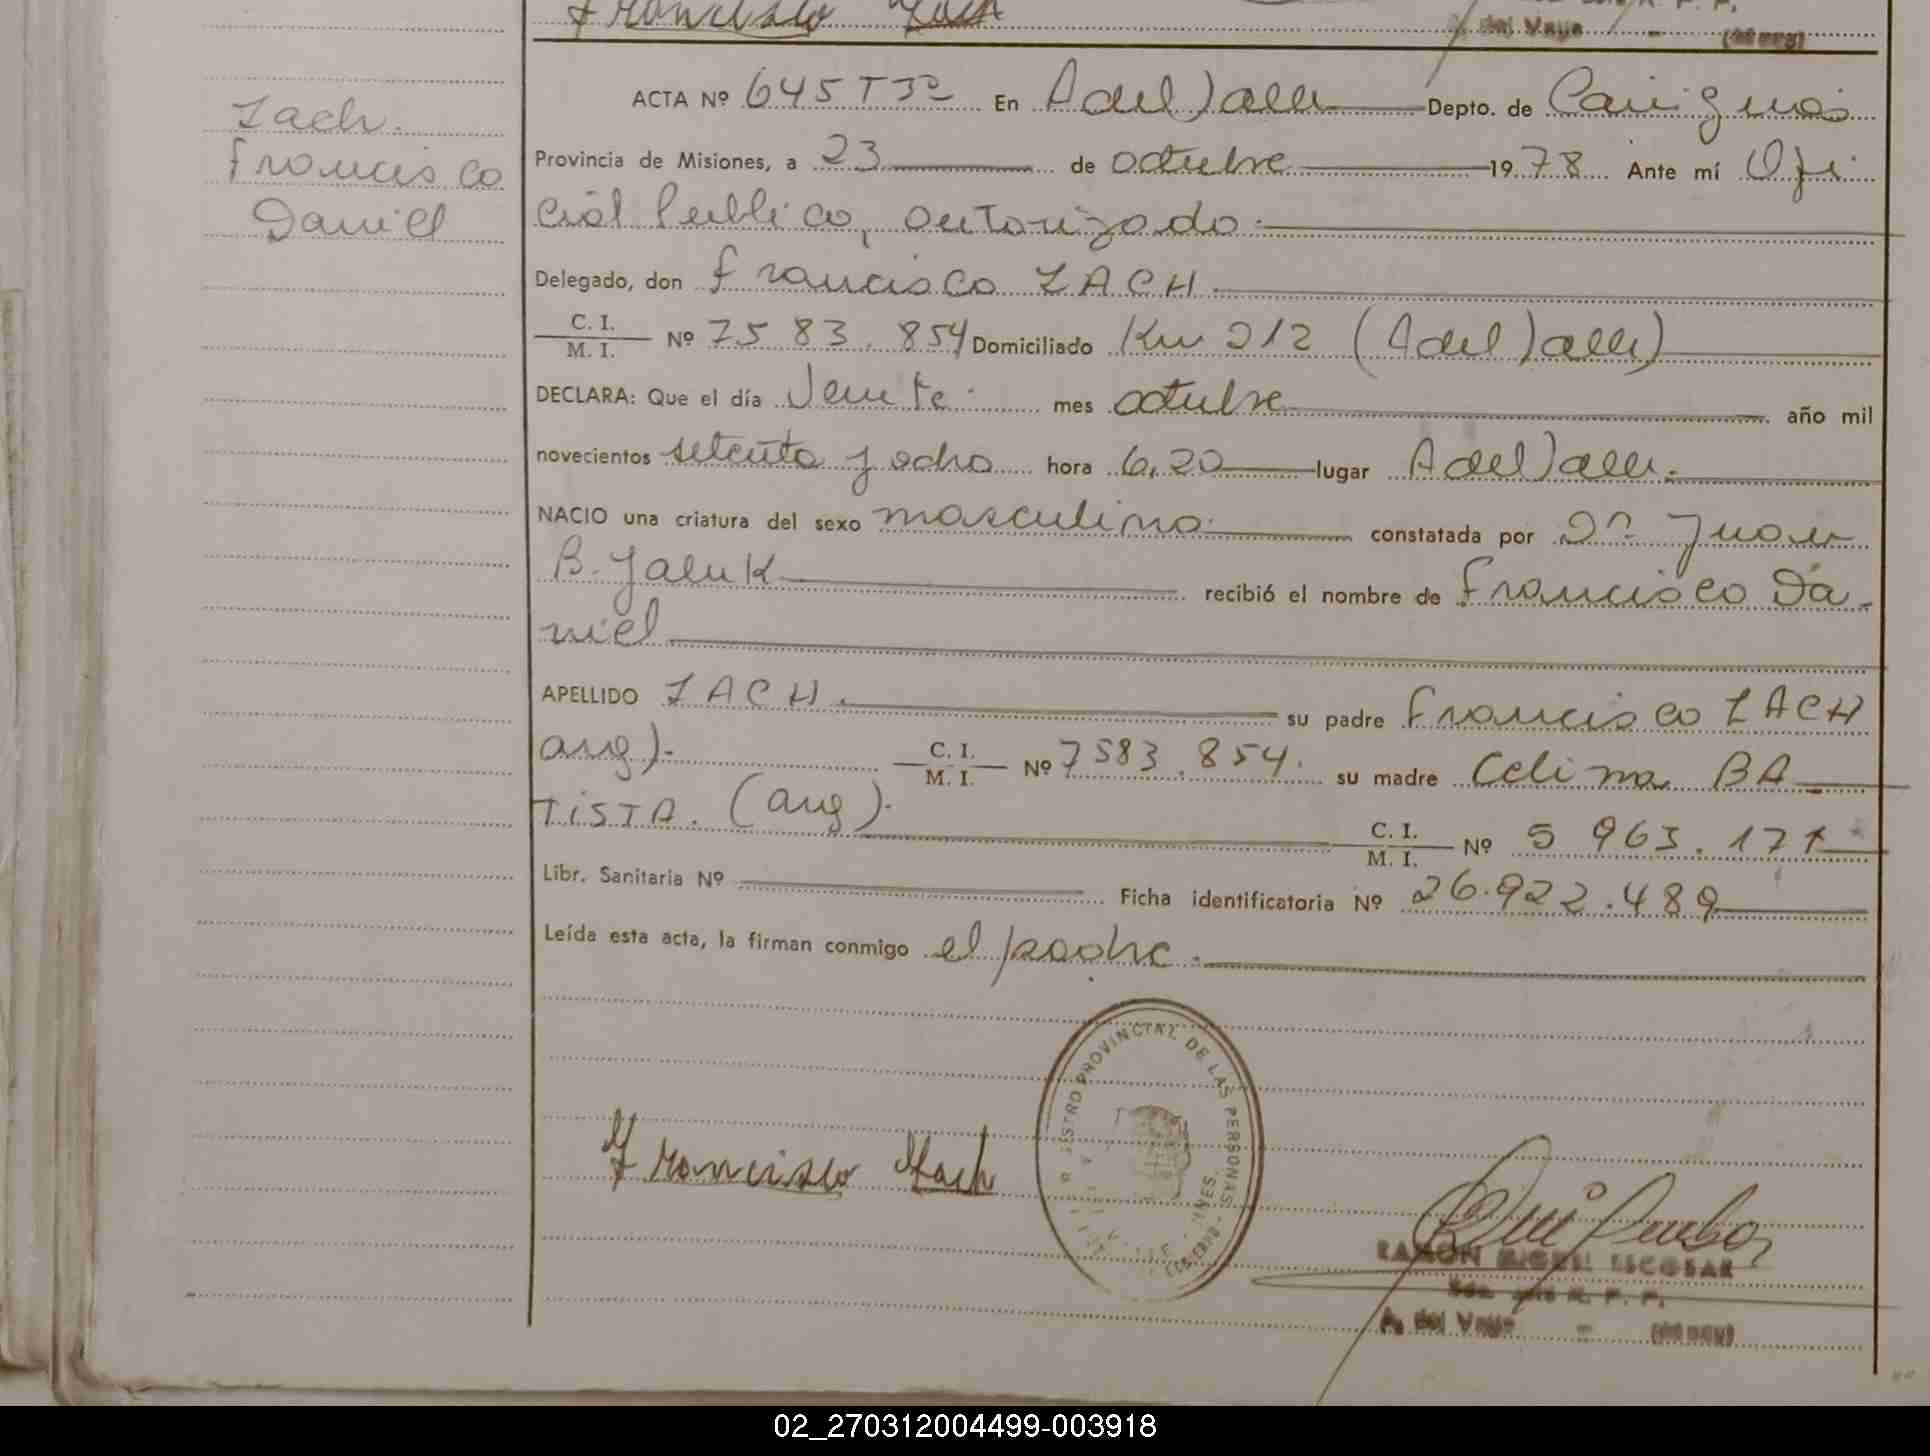 Francisco Zach
A. del Valle - (Mnes)
Zach.
Francisco
Daniel
ACTA Nº 645 T 3º En A del Valle Depto. de Cainguás
Provincia de Misiones, a 23 de octubre 1978 Ante mí Ofi
cial Publico, autorizado.
Delegado, don Francisco ZACH
C. I. / M. I. Nº 7583.854 Domiciliado Km 212 (A del Valle)
DECLARA: Que el día Veinte mes octubre año mil
novecientos setenta y ocho hora 6,20 lugar A del Valle.
NACIO una criatura del sexo masculino. constatada por Dº Juan
B. Jaluk recibió el nombre de Francisco Da-
niel
APELLIDO ZACH. su padre Francisco ZACH
arg). C. I. / M. I. Nº 7583.854. su madre Celina BA
TISTA. (arg). C. I. / M. I. Nº 5 963.171
Libr. Sanitaria Nº Ficha identificatoria Nº 26.922.489
Leída esta acta, la firman conmigo el padre.
REGISTRO PROVINCIAL DE LAS PERSONAS
Francisco Zach
RAMON MIGUEL ESCOBAR
R. P. P.
A. del Valle - (Mnes)
02_270312004499-003918